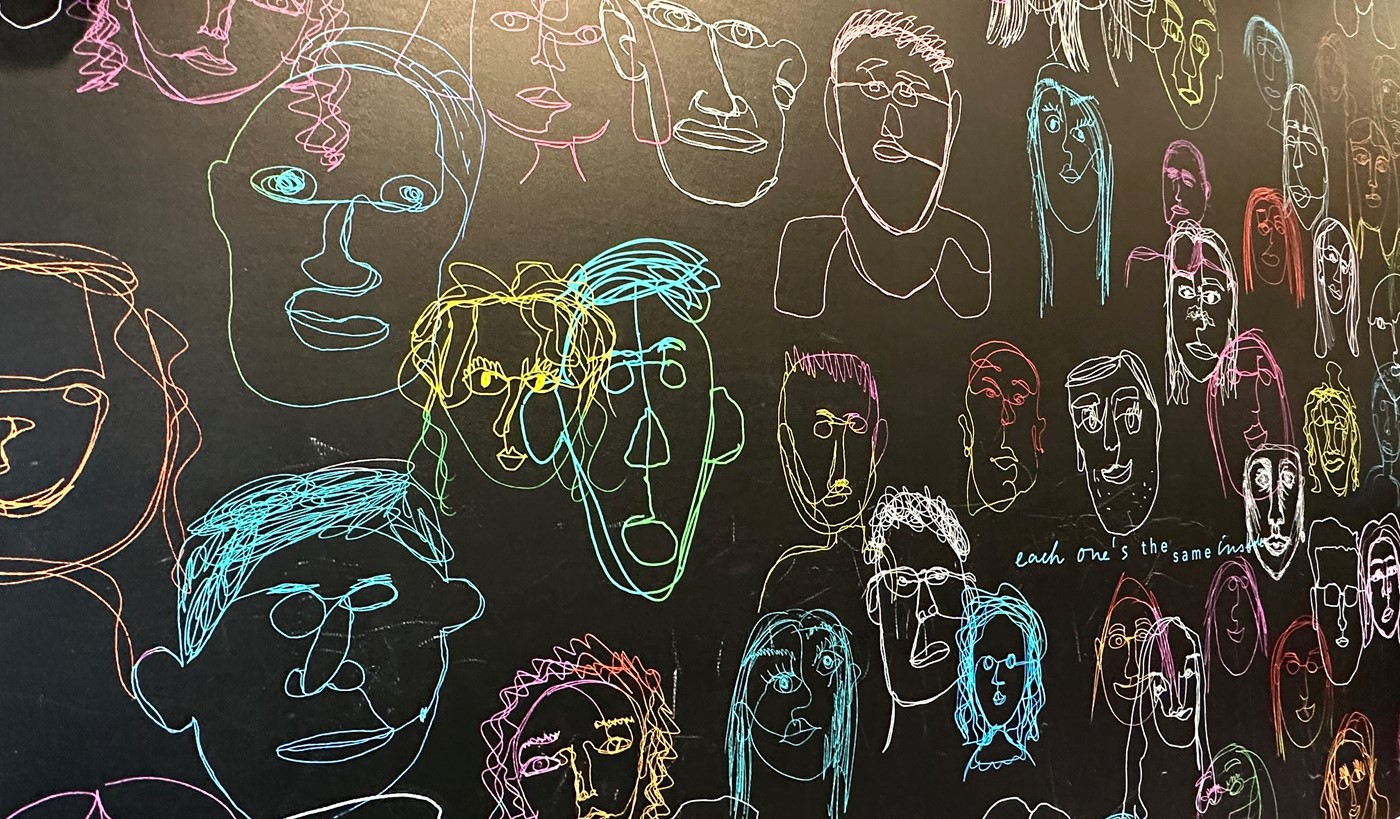 each one's the same inside